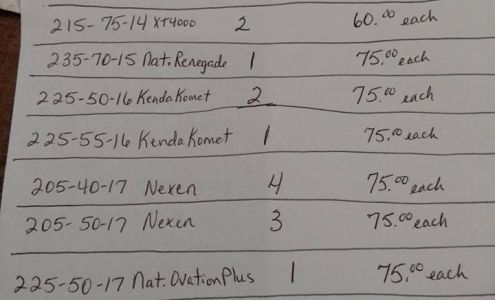 215-75-14 XT4000 2 60.00 each
235-70-15 Nat. Renegade 1 75.00 each
225-50-16 Kenda Komet 2 75.00 each
225-55-16 Kenda Komet 1 75.00 each
205-40-17 Nexen 4 75.00 each
205-50-17 Nexen 3 75.00 each
225-50-17 Nat. Ovation Plus 1 75.00 each